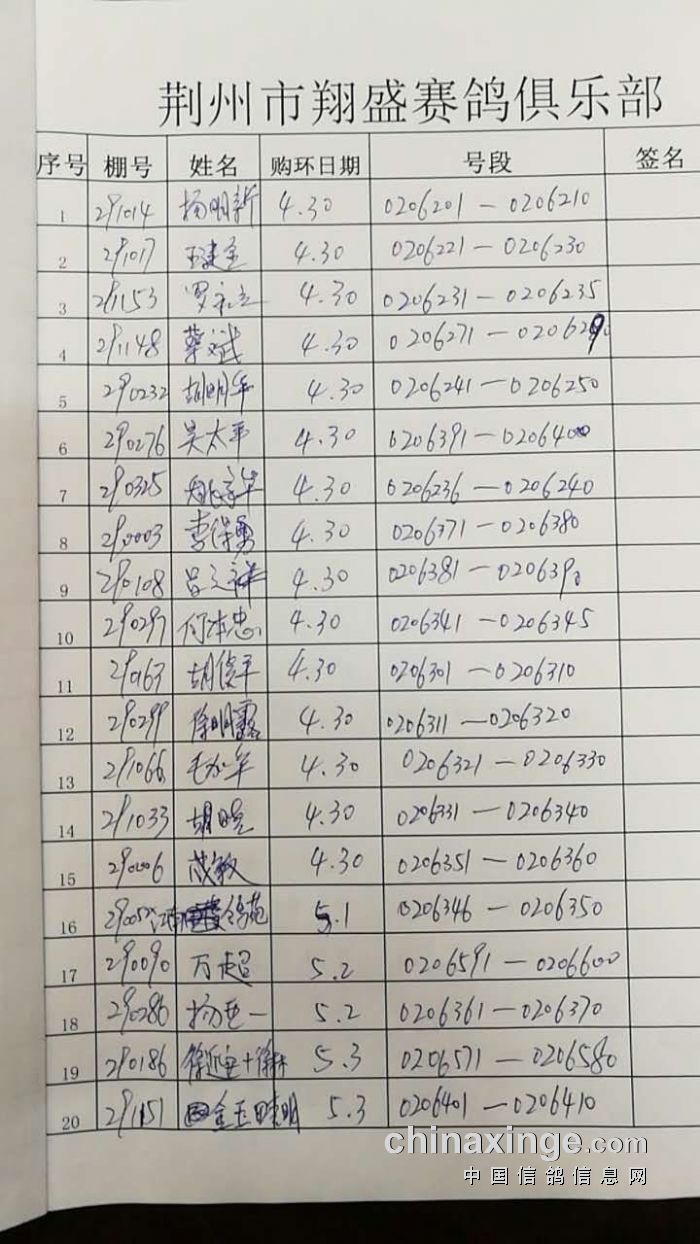 荆州市翔盛赛鸽俱乐部
序号 棚号 姓名 购环日期 号段 签名
1 291014 杨明新 4.30 0206201—0206210
2 291017 王建全 4.30 0206221—0206230
3 291153 罗 4.30 0206231—0206235
4 291148 蔡斌 4.30 0206271—0206290
5 290232 胡明华 4.30 0206241—0206250
6 290276 吴太平 4.30 0206391—0206400
7 290325 4.30 0206236—0206240
8 290003 李保勇 4.30 0206371—0206380
9 290108 吕文祥 4.30 0206381—0206390
10 290297 何本忠 4.30 0206341—0206345
11 290163 胡俊平 4.30 0206301—0206310
12 290299 徐明露 4.30 0206311—0206320
13 291066 毛 4.30 0206321—0206330
14 291033 胡晓 4.30 0206331—0206340
15 290006 成敏 4.30 0206351—0206360
16 5.1 0206346—0206350
17 290090 万超 5.2 0206591—0206600
18 290286 杨亚一 5.2 0206361—0206370
19 290186 5.3 0206571—0206580
20 291151 5.3 0206401—0206410
chinaxinge.com
中国信鸽信息网